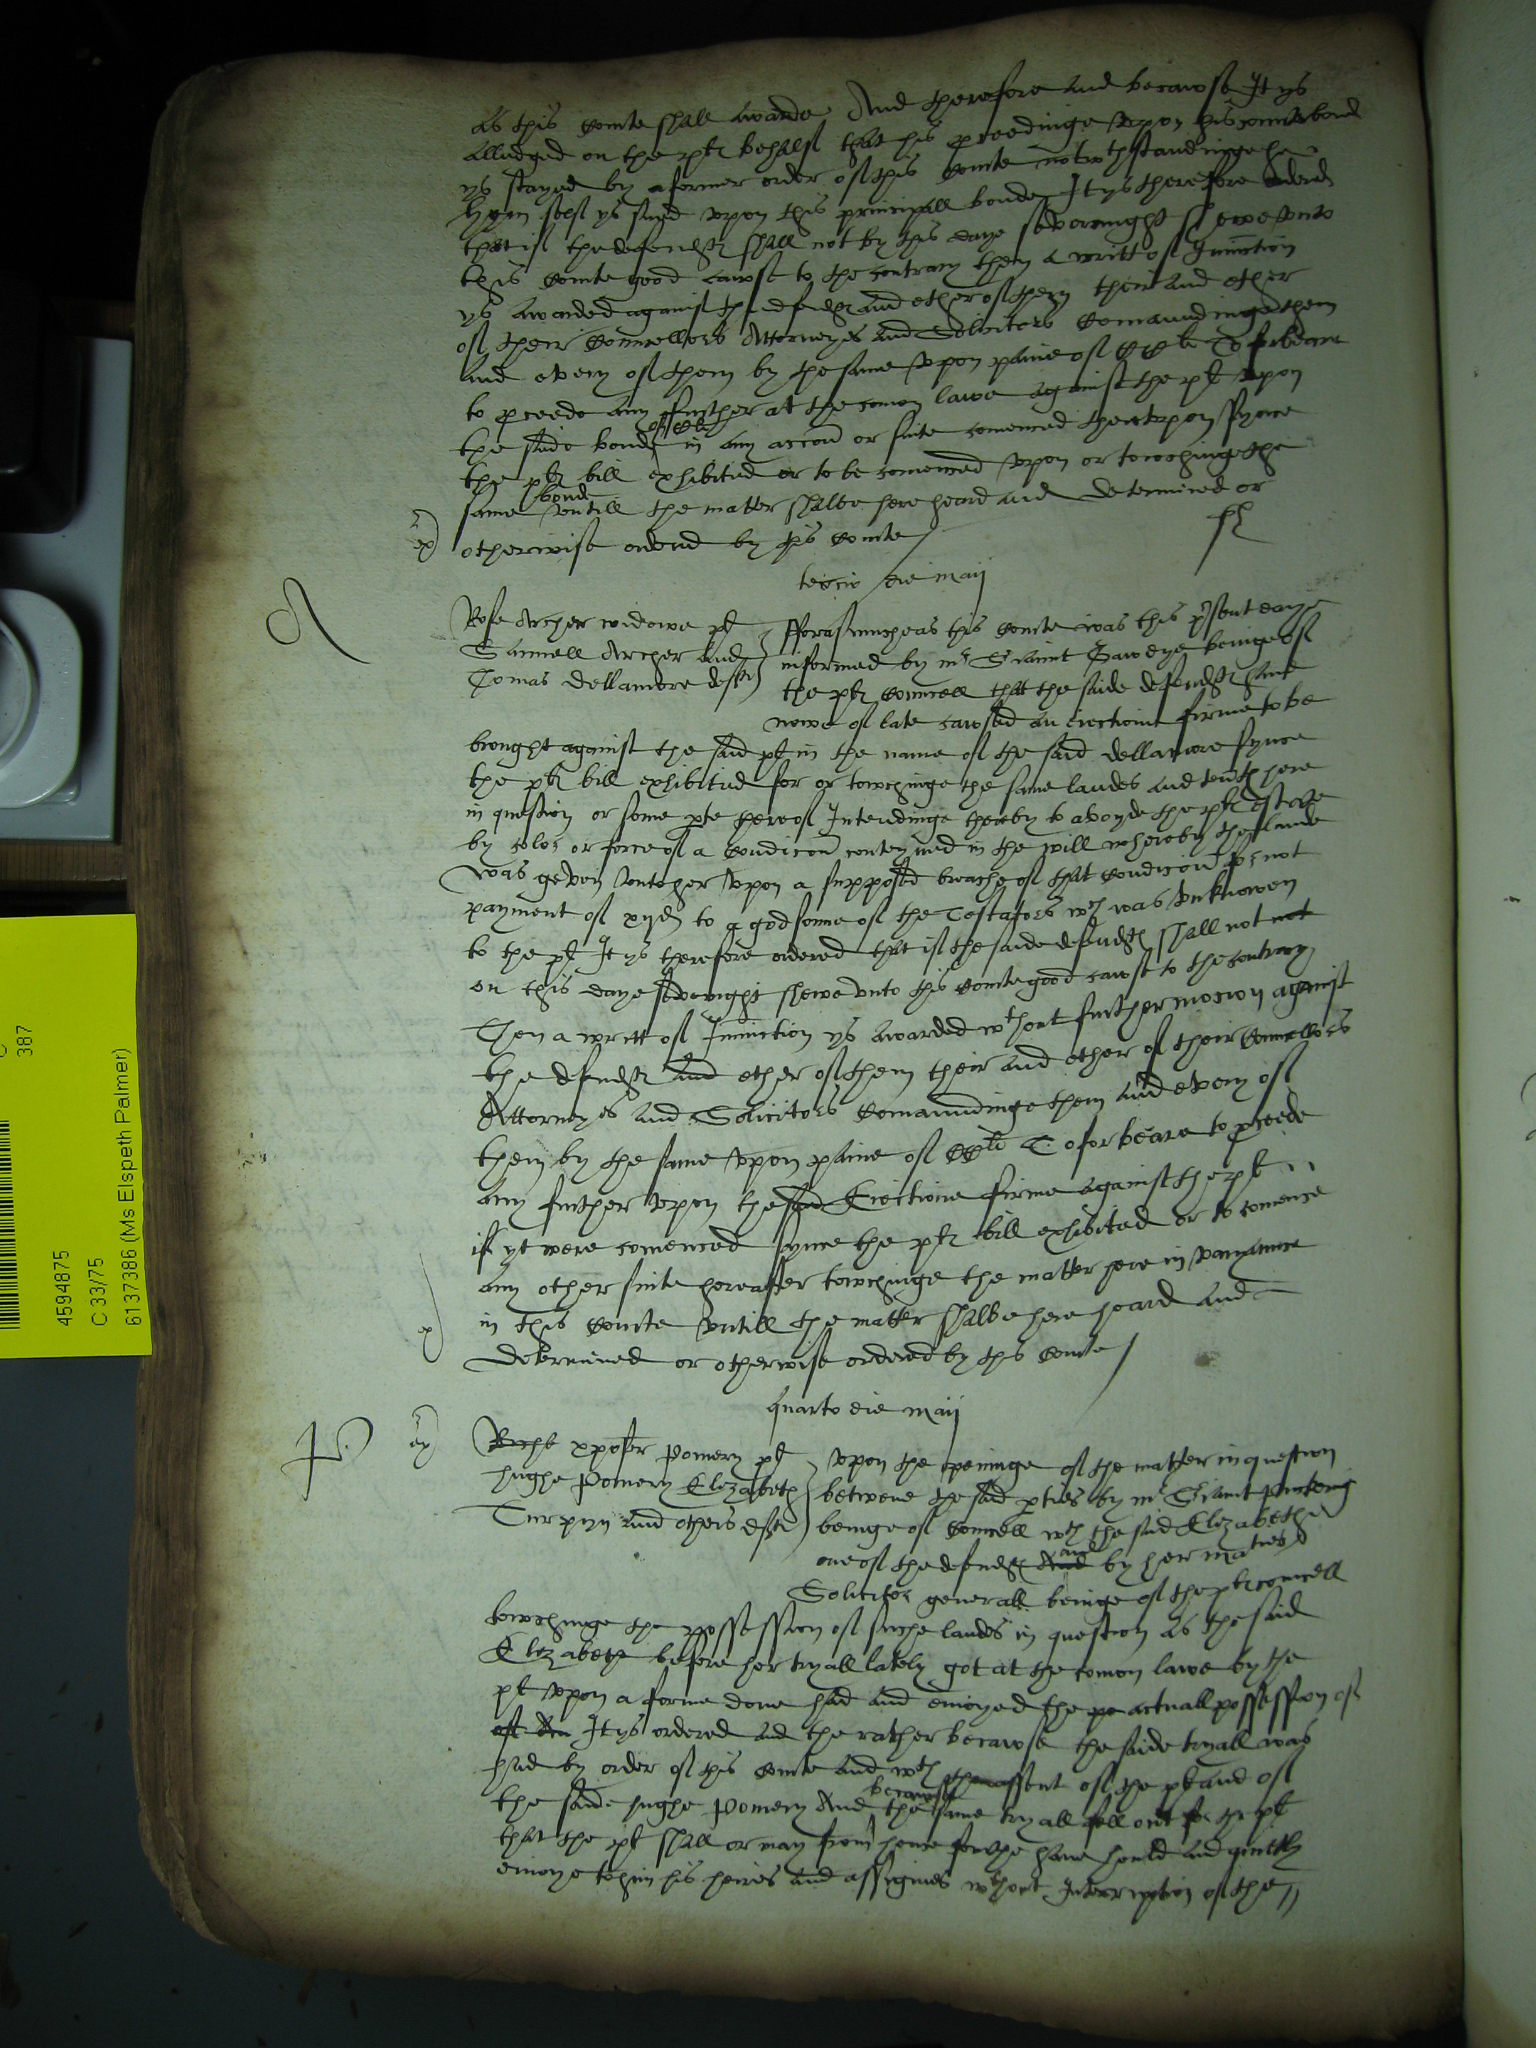 as this Courte shall awarde And therefore and becawse It ys
alledged on the plt behalf that his pceedinge upon his counterbond
ys stayed by a former order of this Courte notwthstandinge he
hym self ys sued upon this principall bonde It ys therefore ordered
that if the defendt shall not by this daye sevennight shewe unto
this Courte good cawse to the contrary then a writt of Iniunction
ys awarded against the defendt and other of them their and other
of their Councellors Attorneyes and Solicitors Comaundinge them
and every of them by the same upon paine of CCli To forbeare
to pceede any further at the comon lawe against the plt upon
the saide bonde of CCli in any accon or suite comenced thereupon synce
the plt bill exhibited or to be comenced upon or towchinge the
same bonde untill the matter shalbe here heard and determined or
otherwise ordred by this Courte
ex
tercio die maij
A
Rose Archer widowe plt
Samuell Archer and
Tomas Dellamore deft
fforasmuche as this Courte was this psent daye
informed by mr Sriaunt beinge of
the plt Councell that the saide defendt hane
nowe of late cawsed an eiectione firme to be
brought against the said plt in the name of the said Dellamore synce
the plt bill exhibited for or towchinge the same landes and tents here
in question or some pte thereof Intendinge thereby to avoyde the plt estate
by color or force of a Condicon conteyned in the will whereby the lande
was geven unto her upon a supposed breache of that Condicon for not
payment of xijd to a godsonne of the Testators wch was unknowen
to the plt It ys therefore ordered that if the saide defendt shall not not
on this daye sevennight shewe unto this Courte good cawse to the contrary
Then a writt of Iniunction ys awarded wthout further mocion against
the defendt and other of them their and other of their Councellors
Attorneyes and Solicitors Comaundinge them and every of
them by the same upon paine of CCli To forbeare to pceede
any further upon the said Eiectione firme against the plt
if yt were comenced synce the plt bill exhibited or to comence
any other suite hereafter towchinge the matter here in variaunce
in this Courte untill the matter shalbe here heard and
determined or otherwise ordered by this Courte
ex
quarto die maij
P
ex
xpofer Pomery plt
Hughe Pomery Elizabeth
Turpyn and others deft
Upon the openinge of the matter in question
betwene the said pties by mr Sriaunt Puckering
beinge of Councell wth the said Elizabeth
one of the defendt and and by her maties
Solicitor generall beinge of the plt councell
towchinge the possession of suche landes in question as the said
Elizabeth before her tryall lately got at the comon lawe by the
plt upon a forme done had and enioyed the po actuall possession of
It ys ordered and the rather becawse the saide tryall was
had by order of this Courte and wth the assent of the plt and of
the saide Hughe Pomery And becawse the same tryall fell out for the plt
that the plt shall or may from hence forthe have hould and quietly
enioye to him his heires and assignes wthout Interruption of the
4594875
C 33/75
6137386 (Ms Elspeth Palmer)
387